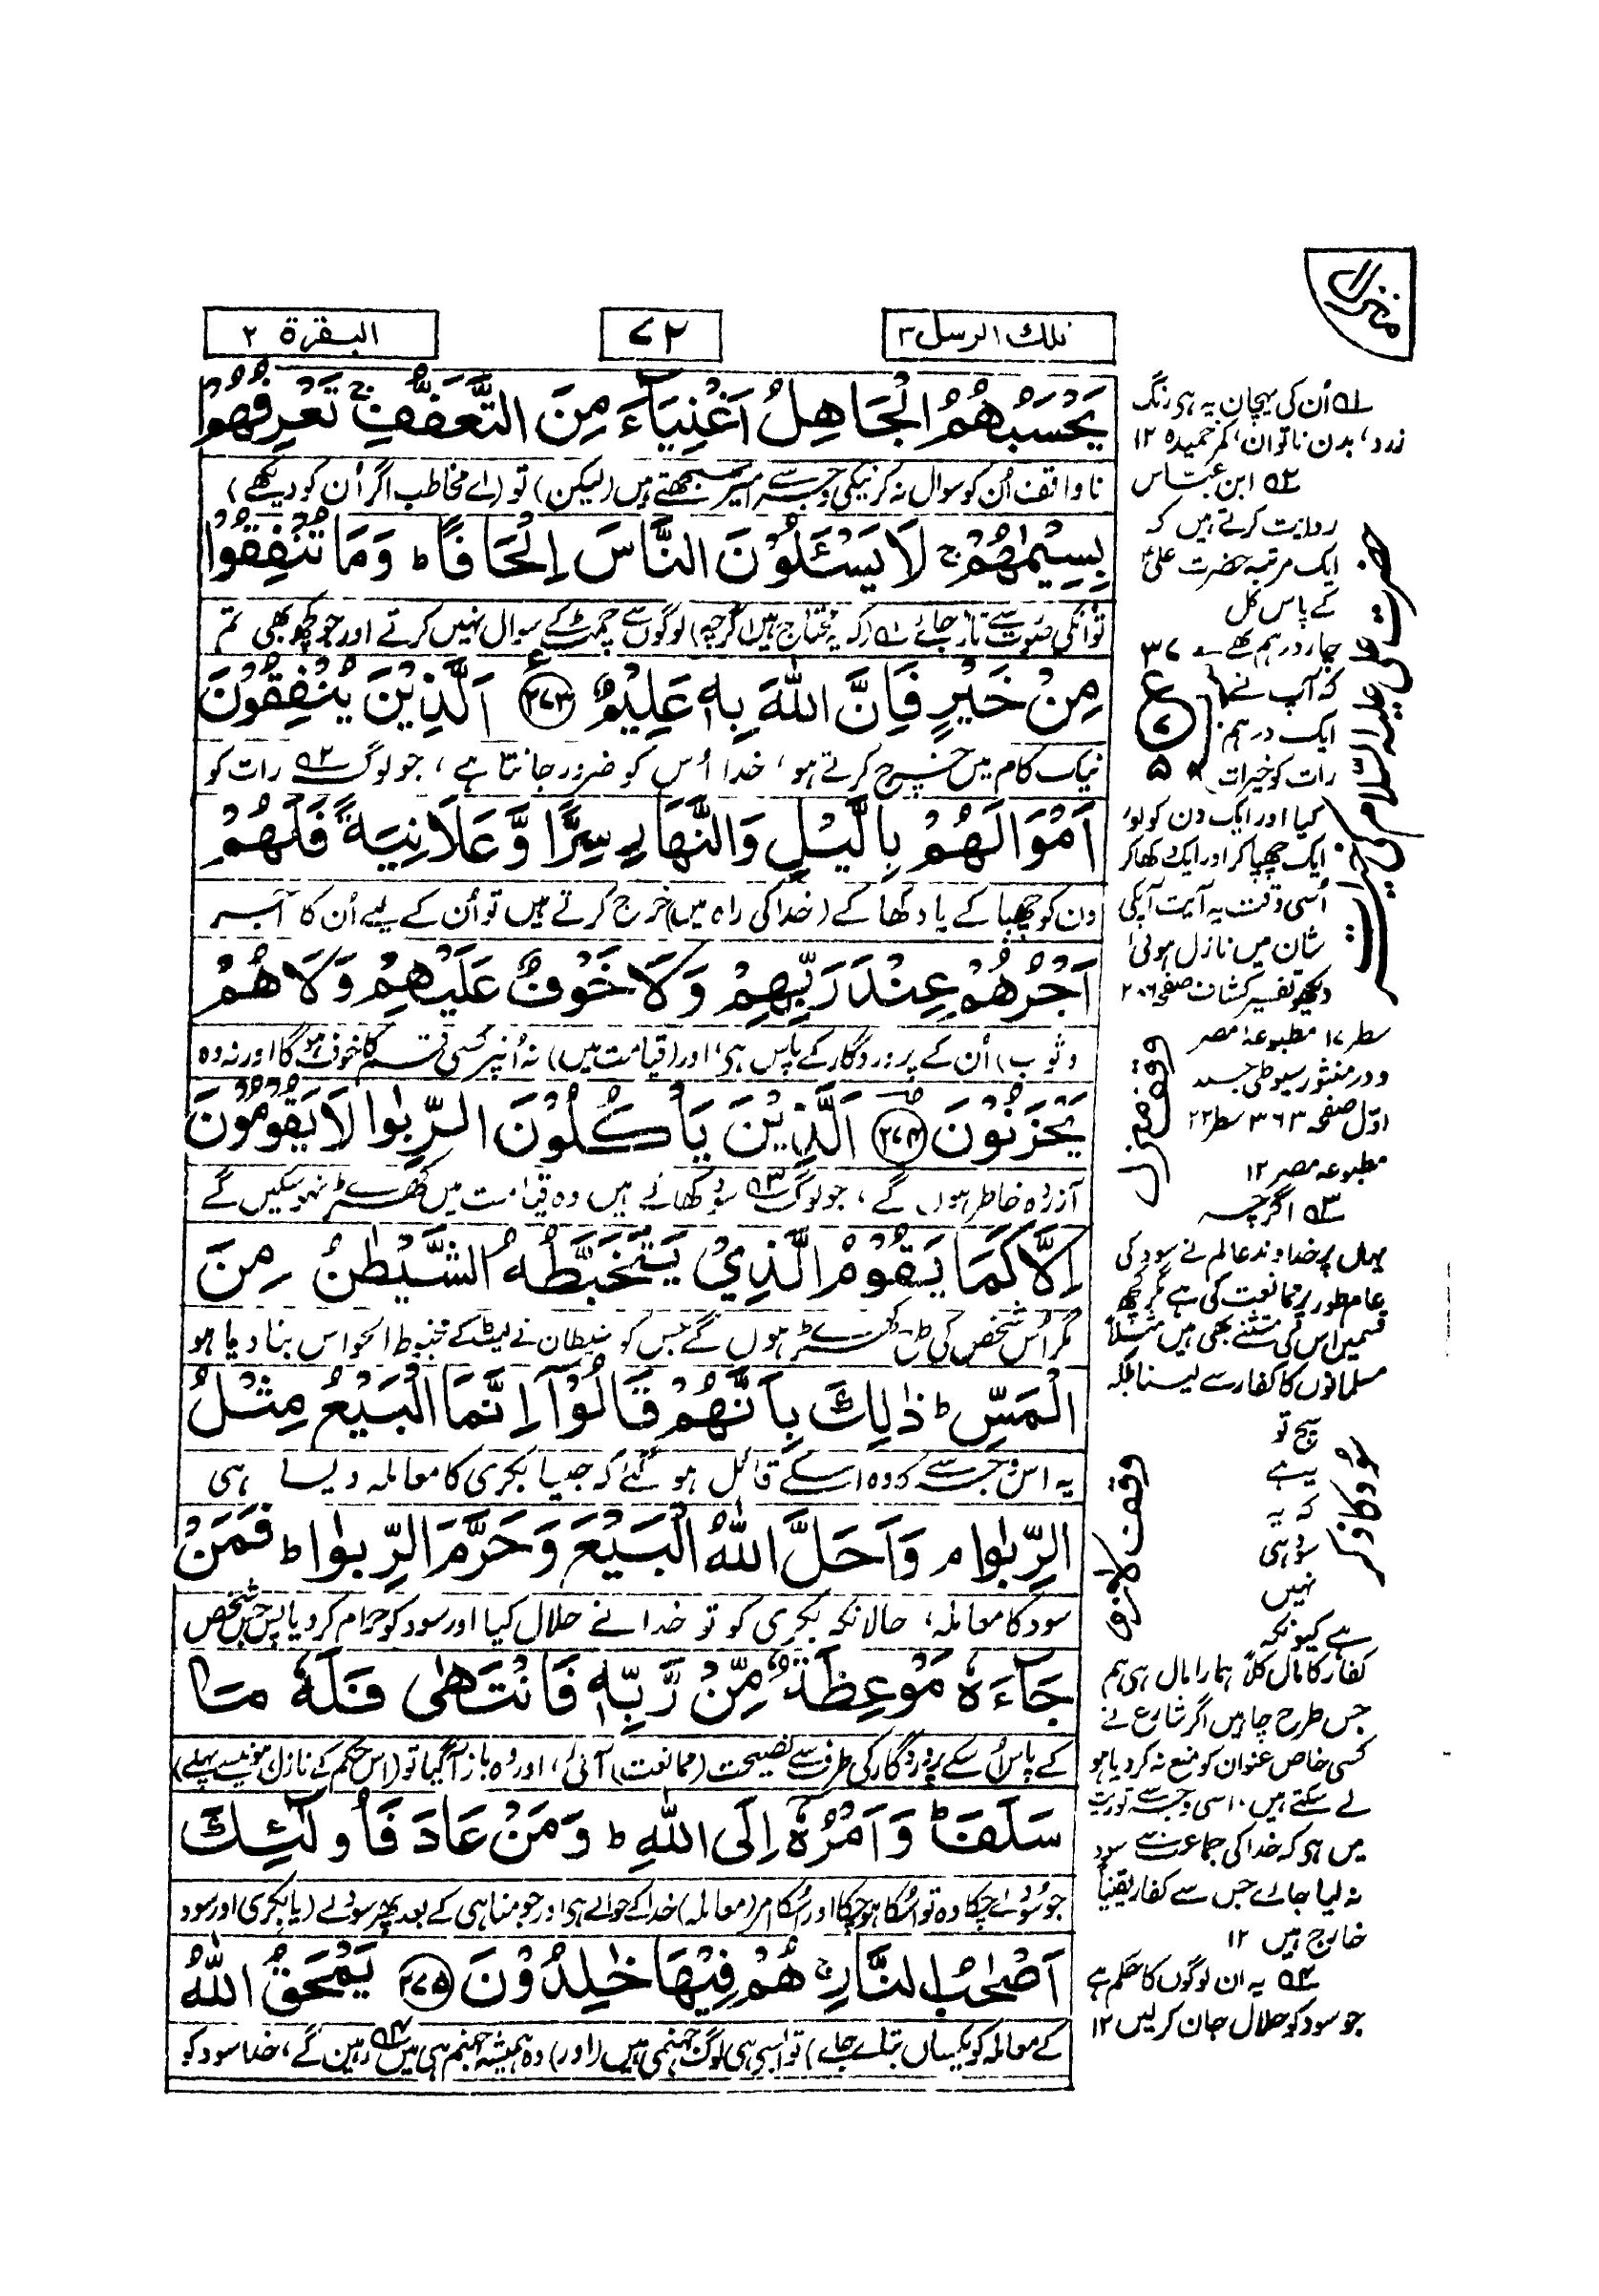 منزل
تلك الرسل ۳
۷۲
البقرة ۲
يَحْسَبُهُمُ الْجَاهِلُ اَغْنِيَآءَ مِنَ التَّعَفُّفِ ۚ تَعْرِفُهُمْ
ناواقف اُن کو سوال نہ کرنیکی وجہ سے امیر سمجھتے ہیں (لیکن) تو (اے مخاطب اگر اُن کو دیکھے)
بِسِيْمٰهُمْ ۚ لَا يَسْـَٔلُوْنَ النَّاسَ اِلْحَافًا ؕ وَمَا تُنْفِقُوْا
تو انکی صورت سے تاڑ جائے ۱ (کہ یہ محتاج ہیں اگرچہ) لوگوں سے چمٹ کے سوال نہیں کرتے اور جو کچھ بھی تم
مِنْ خَيْرٍ فَاِنَّ اللّٰهَ بِهٖ عَلِيْمٌ ۲۷۳ ع اَلَّذِيْنَ يُنْفِقُوْنَ
نیک کام میں خرچ کرتے ہو، خدا اُس کو ضرور جانتا ہے، جو لوگ ۲ رات کو
اَمْوَالَهُمْ بِالَّيْلِ وَالنَّهَارِ سِرًّا وَّعَلَانِيَةً فَلَهُمْ
دن کو چھپا کے یا دکھا کے (خدا کی راہ میں) خرچ کرتے ہیں تو اُن کے لیے اُن کا اجر
اَجْرُهُمْ عِنْدَ رَبِّهِمْ وَلَا خَوْفٌ عَلَيْهِمْ وَلَا هُمْ
و ثوب) اُن کے پروردگار کے پاس ہی، اور (قیامت میں) نہ اُنپر کسی قسم کا خوف ہو گا اور نہ وہ
يَحْزَنُوْنَ ۲۷۴ اَلَّذِيْنَ يَاْكُلُوْنَ الرِّبٰوا لَا يَقُوْمُوْنَ
آزردہ خاطر ہوں گے، جو لوگ ۳ سود کھاتے ہیں وہ قیامت میں کھڑے نہو سکیں گے
اِلَّا كَمَا يَقُوْمُ الَّذِيْ يَتَخَبَّطُهُ الشَّيْطٰنُ مِنَ
مگر اُس شخص کی طرح کھڑے ہوں گے جس کو شیطان نے لپٹ کے مخبوط الحواس بنا دیا ہو
الْمَسِّ ؕ ذٰلِكَ بِاَنَّهُمْ قَالُوْٓا اِنَّمَا الْبَيْعُ مِثْلُ
یہ اس وجہ سے کہ وہ اسکے قائل ہو گئے کہ جیسا بکری کا معاملہ ویسا ہی
الرِّبٰوا م وَاَحَلَّ اللّٰهُ الْبَيْعَ وَحَرَّمَ الرِّبٰوا ؕ فَمَنْ
سود کا معاملہ، حالانکہ بکری کو تو خدا نے حلال کیا اور سود کو حرام کر دیا پس جس شخص
جَآءَهٗ مَوْعِظَةٌ مِّنْ رَّبِّهٖ فَانْتَهٰى فَلَهٗ مَا
کے پاس اُسکے پروردگار کی طرف سے نصیحت (ممانعت) آئی، اور وہ باز آگیا تو (اس حکم کے نازل ہونیسے پہلے)
سَلَفَ ؕ وَاَمْرُهٗٓ اِلَى اللّٰهِ ؕ وَمَنْ عَادَ فَاُولٰٓئِكَ
جو سود لے چکا وہ تو اُسکا ہو چکا اور اُسکا امر (معاملہ) خدا کے حوالے ہی اور جو مناہی کے بعد پھر سود لے (یا بکری اور سود
اَصْحٰبُ النَّارِ ۚ هُمْ فِيْهَا خٰلِدُوْنَ ۲۷۵ يَمْحَقُ اللّٰهُ
کے معاملہ کو یکساں بتلائے جائے) تو ایسی ہی لوگ جہنمی ہیں (اور) وہ ہمیشہ جہنم ہی میں ۴ رہیں گے، خدا سود کو
۱ اُن کی پہچان یہ ہی رنگ
زرد، بدن ناتوان، کمر خمیدہ ۱۲
۲ ابن عباس
روایت کرتے ہیں کہ
ایک مرتبہ حضرت علیؑ
کے پاس کل
چار درہم تھے
کہ آپ نے
ایک درہم
رات کو خیرات
کیا اور ایک دن کو اور
ایک چھپا کر اور ایک دکھا کر
اُسی وقت یہ آیت آپکی
شان میں نازل ہوئی
دیکھو تفسیر کشاف صفحہ ۲۰۶
سطر ۱۷ مطبوعہ مصر
و درمنثور سیوطی جلد
اوّل صفحہ ۳۶۳ سطر ۲۲
مطبوعہ مصر ۱۲
۳۷
ع
۷
۵
حضرت علی علیہ السلام کی خیرات
وقف منزل
۳ اگرچہ
یہاں پر خداوند عالم نے سود کی
عام طور پر ممانعت کی ہے مگر کچھ
قسمیں اس کی مستثنے بھی ہیں مثلاً
مسلمانوں کا کفار سے لینا بلکہ
سچ تو
یہ ہے
کہ یہ
سود ہی
نہیں
ہے کیونکہ
کفار کا مال کلاً ہمارا مال ہی ہم
جس طرح چاہیں اگر شارع نے
کسی خاص عنوان کو منع نہ کر دیا ہو
لے سکتے ہیں، اسی وجہ سے توریت
میں ہی کہ خدا کی جماعت سے سود
نہ لیا جائے جس سے کفار یقیناً
خارج ہیں ۱۲
سود کافر
وقف لازم
۴ یہ ان لوگوں کا حکم ہے
جو سود کو حلال جان کر لیں ۱۲